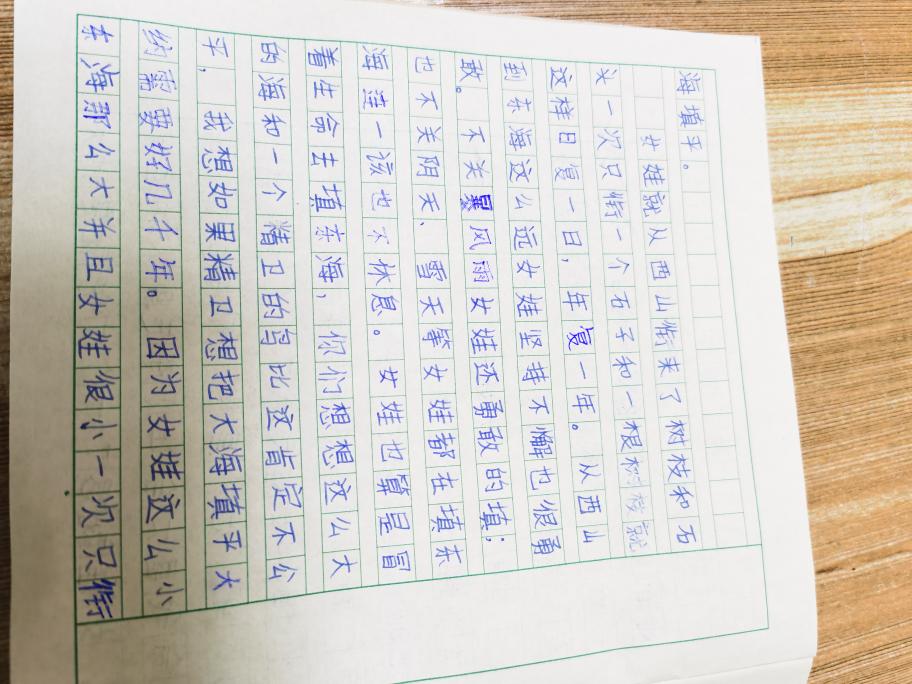 海填平。
女娃就从西山衔来了树枝和石
头一次只衔一个石子和一根树枝就
这样日复一日，年复一年。从西山
到东海这么远女娃坚持不懈也很勇
敢。不关暴风雨女娃还勇敢的填；
也不关阴天、雪天等女娃都在填东
海连一该也不休息。女娃也算是冒
着生命去填东海，你们想想这么大
的海和一个精卫的鸟比这肯定不公
平，我想如果精卫想把大海填平大
约需要好几千年。因为女娃这么小
东海那么大并且女娃很小一次只衔